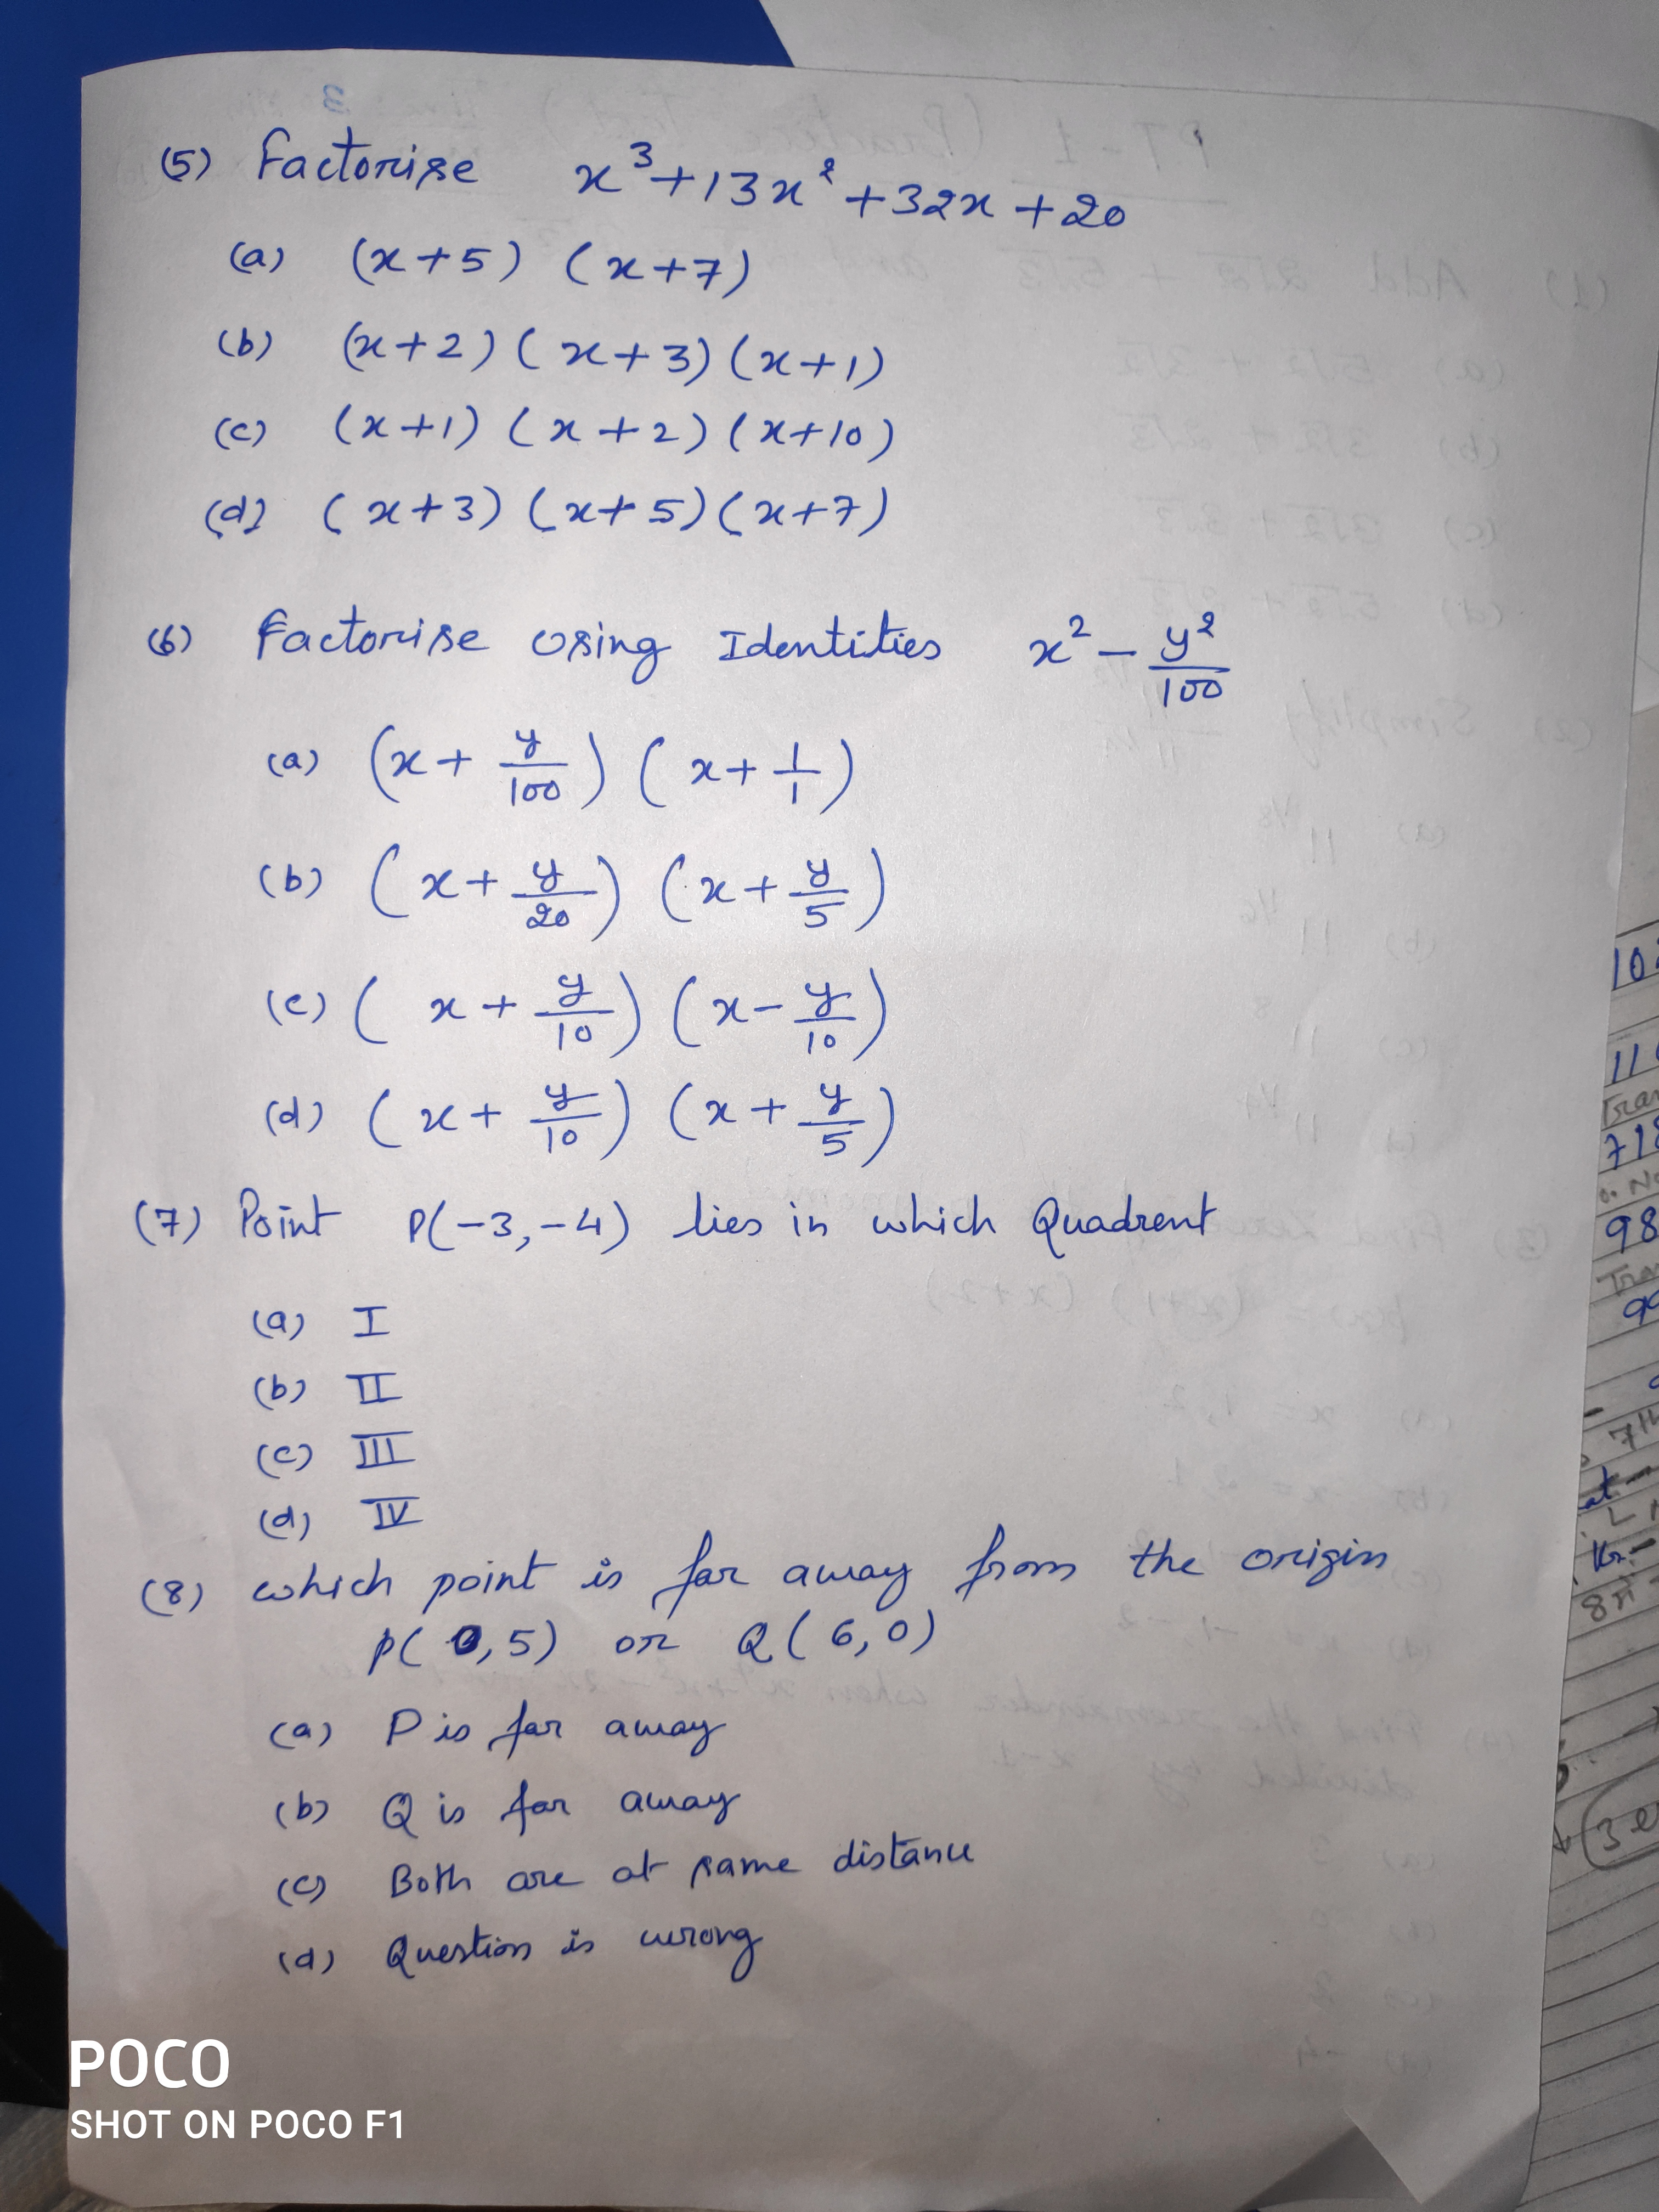 (5) Factorise x³+13x²+32x+20
(a) (x+5) (x+7)
(b) (x+2) (x+3) (x+1)
(c) (x+1) (x+2) (x+10)
(d) (x+3) (x+5) (x+7)
(6) Factorise Using Identities x² - y²/100
(a) (x + y/100) (x + 1/1)
(b) (x + y/20) (x + y/5)
(c) (x + y/10) (x - y/10)
(d) (x + y/10) (x + y/5)
(7) Point P(-3,-4) lies in which Quadrent
(a) I
(b) II
(c) III
(d) IV
(8) which point is far away from the origin
P(0,5) or Q(6,0)
(a) P is far away
(b) Q is far away
(c) Both are at same distance
(d) Question is wrong
POCO
SHOT ON POCO F1